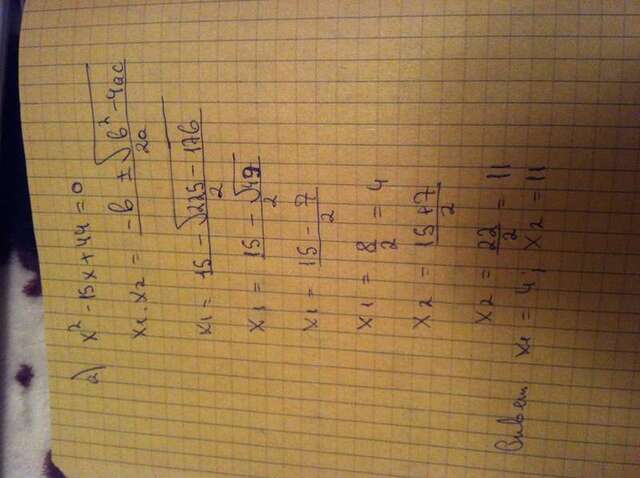 2) x² - 15x + 44 = 0
x₁, x₂ = (-b ± √(b² - 4ac)) / 2a
x₁ = (15 - √(225 - 176)) / 2
x₁ = (15 - √49) / 2
x₁ = (15 - 7) / 2
x₁ = 8/2 = 4
x₂ = (15 + 7) / 2
x₂ = 22/2 = 11
Ответ x₁ = 4; x₂ = 11